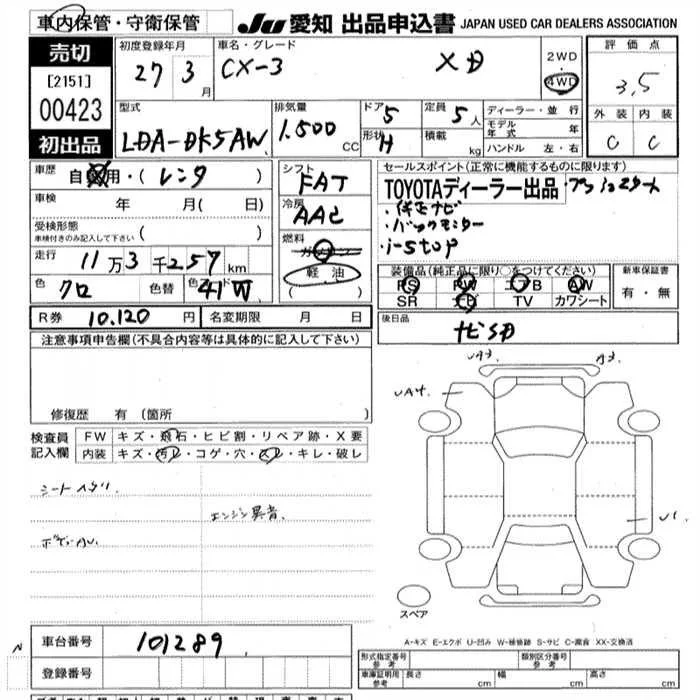 車内保管・守衛保管
JU 愛知 出品申込書 JAPAN USED CAR DEALERS ASSOCIATION
売切
[2151]
00423
初出品
初度登録年月
27 3 月
車名・グレード
CX-3 XD
2WD
4WD
評価点
3,5
外装 内装
C C
型式
LDA-DK5AW
排気量
1.500 CC
ドア 5
形状 H
定員 5 人
積載 kg
ディーラー・並行
モデル年式 年
ハンドル 左・右
車歴 自家用・( レンタ )
車検 年 月( 日)
受検形態
車検付きのみ記入して下さい ( )
走行 11万3千257km
色 クロ 色替 コード 41W
シフト FAT
冷房 AAC
燃料 ガソリン
軽油
( )
セールスポイント(正常に機能するものに限ります)
TOYOTAディーラー出品・プッシュスタート
・純正ナビ
・バックモニター
・i-stop
装備品(純正品に限り○をつけてください)
PS PW エアB AW
SR ナビ TV カワシート
新車保証書
有・無
R券 10.120 円 名変期限 月 日
後日品
ナビSD
注意事項申告欄(不具合内容等は具体的に記入して下さい)
修復歴 有(箇所
検査員記入欄
FW キズ・飛石・ヒビ割・リペア跡・X要
内装 キズ・汚レ・コゲ・穴・スレ・キレ・破レ
シートスグリ
エンジン異音.
UA3 A3
UA4
U1
スペア
A-キズ E-エクボ U-凹み W-補修跡 S-サビ C-腐食 XX-交換済
N
車台番号 101289
登録番号
形式指定番号 参考
類別区分番号 参考
車庫証明用 参考 長さ cm 幅 cm 高さ cm